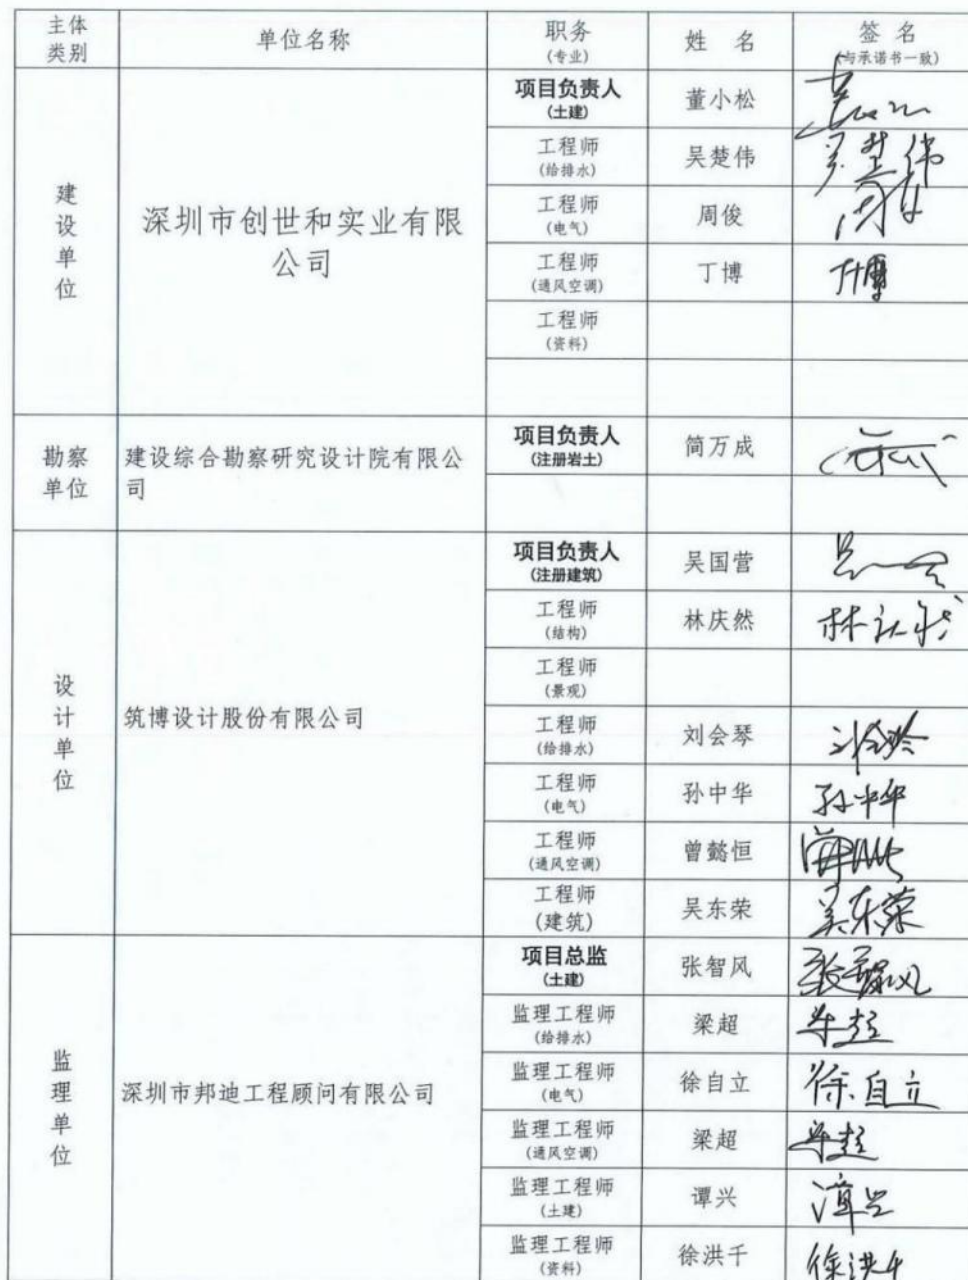 主体
类别
单位名称
职务
(专业)
姓 名
签 名
(与承诺书一致)
建
设
单
位
深圳市创世和实业有限
公司
项目负责人
(土建)
董小松
工程师
(给排水)
吴楚伟
吴楚伟
工程师
(电气)
周俊
工程师
(通风空调)
丁博
丁博
工程师
(资料)
勘察
单位
建设综合勘察研究设计院有限公
司
项目负责人
(注册岩土)
简万成
设
计
单
位
筑博设计股份有限公司
项目负责人
(注册建筑)
吴国营
工程师
(结构)
林庆然
工程师
(景观)
工程师
(给排水)
刘会琴
刘会琴
工程师
(电气)
孙中华
孙中华
工程师
(通风空调)
曾懿恒
工程师
(建筑)
吴东荣
吴东荣
监
理
单
位
深圳市邦迪工程顾问有限公司
项目总监
(土建)
张智风
张智风
监理工程师
(给排水)
梁超
监理工程师
(电气)
徐自立
徐自立
监理工程师
(通风空调)
梁超
监理工程师
(土建)
谭兴
谭兴
监理工程师
(资料)
徐洪千
徐洪千